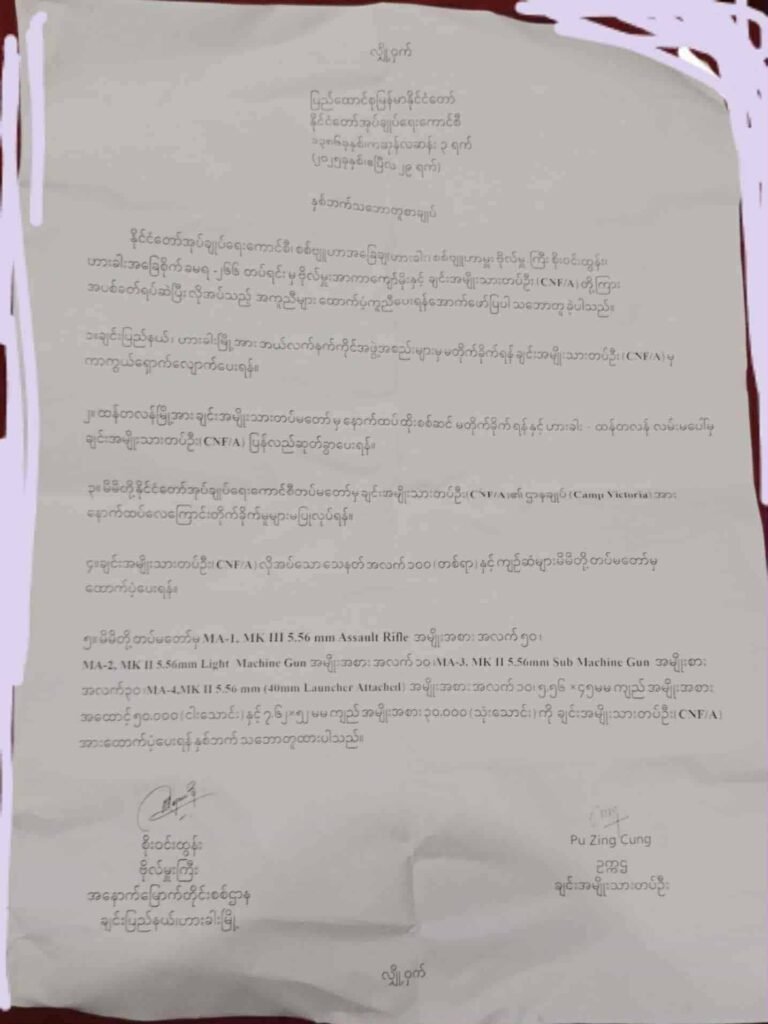 လျှို့ဝှက်
ပြည်ထောင်စုမြန်မာနိုင်ငံတော်
နိုင်ငံတော်အုပ်ချုပ်ရေးကောင်စီ
၁၃၈၆ခုနှစ်၊ကဆုန်လဆန်း ၃ ရက်
(၂၀၂၅ခုနှစ်၊ဧပြီလ ၂၉ ရက်)
နှစ်ဘက်သဘောတူစာချုပ်
နိုင်ငံတော်အုပ်ချုပ်ရေးကောင်စီ၊ စစ်ဗျူဟာအခြေချဟားခါး၊ စစ်ဗျူဟာမှူး ဗိုလ်မှူး ကြီး စိုးဝင်းထွန်း၊
ဟားခါးအခြေစိုက် ခမရ -၂၆၆ တပ်ရင်း မှ ဗိုလ်မှူးအာကာကျော်မိုးနှင့် ချင်းအမျိုးသားတပ်ဦး (CNF/A) တို့ကြား
အပစ်ခတ်ရပ်ဆဲပြီး လိုအပ်သည့် အကူညီများ ထောက်ပံ့ကူညီပေးရန်အောက်ဖော်ပြပါ သဘောတူ ခဲ့ပါသည်။
၁။ချင်းပြည်နယ်၊ ဟားခါးမြို့အား ဘယ်လက်နက်ကိုင်အဖွဲ့အစည်းများမှ မတိုက်ခိုက်ရန် ချင်းအမျိုးသားတပ်ဦး (CNF/A) မှ
ကာကွယ်ရှောက်လျှောက်ပေးရန်။
၂။ ထန်တလန်မြို့အား ချင်းအမျိုးသားတပ်မတော် မှ နောက်ထပ် ထိုးစစ်ဆင် မတိုက်ခိုက် ရန် နှင့် ဟားခါး - ထန်တလန် လမ်းမပေါ်မှ
ချင်းအမျိုးသားတပ်ဦး(CNF/A) ပြန်လည်ဆုတ်ခွာပေးရန်။
၃။ မိမိတို့ နိုင်ငံတော်အုပ်ချုပ်ရေးကောင်စီတပ်မတော်မှ ချင်းအမျိုးသားတပ်ဦး(CNF/A)၏ ဌာနချုပ် (Camp Victoria) အား
နောက်ထပ်လေကြောင်းတိုက်ခိုက်မှုများမပြုလုပ်ရန်။
၄။ချင်းအမျိုးသားတပ်ဦး(CNF/A) လိုအပ်သော သေနတ် အလက် ၁၀၀ (တစ်ရာ) နှင့် ကျည်ဆံများမိမိတို့ တပ်မတော်မှ
ထောက်ပံ့ပေးရန်။
၅။ မိမိတို့ တပ်မတော်မှ MA-1, MK III 5.56 mm Assault Rifle အမျိုးအစား အလက် ၅၀၊
MA-2, MK II 5.56mm Light Machine Gun အမျိုးအစား အလက် ၁၀ ၊MA-3, MK II 5.56mm Sub Machine Gun အမျိုးစား
အလက်၃၀ ၊MA-4,MK II 5.56 mm (40mm Launcher Attached) အမျိုးအစား အလက် ၁၀၊ ၅.၅၆ × ၄၅မမ ကျည် အမျိုးအစား
အထောင့် ၅၀.၀၀၀ (ငါးသောင်း) နှင့် ၇.၆၂×၅၂ မမ ကျည် အမျိုးအစား ၃၀.၀၀၀ (သုံးသောင်း) ကို ချင်းအမျိုးသားတပ်ဦး(CNF/A)
အားထောက်ပံ့ပေးရန် နှစ်ဘက် သဘောတူထားပါသည်။
စိုးဝင်းထွန်း
ဗိုလ်မှူးကြီး
အနောက်မြောက်တိုင်းစစ်ဌာန
ချင်းပြည်နယ်၊ဟားခါးမြို့
Pu Zing Cung
ဥက္ကဌ
ချင်းအမျိုးသားတပ်ဦး
လျှို့ဝှက်